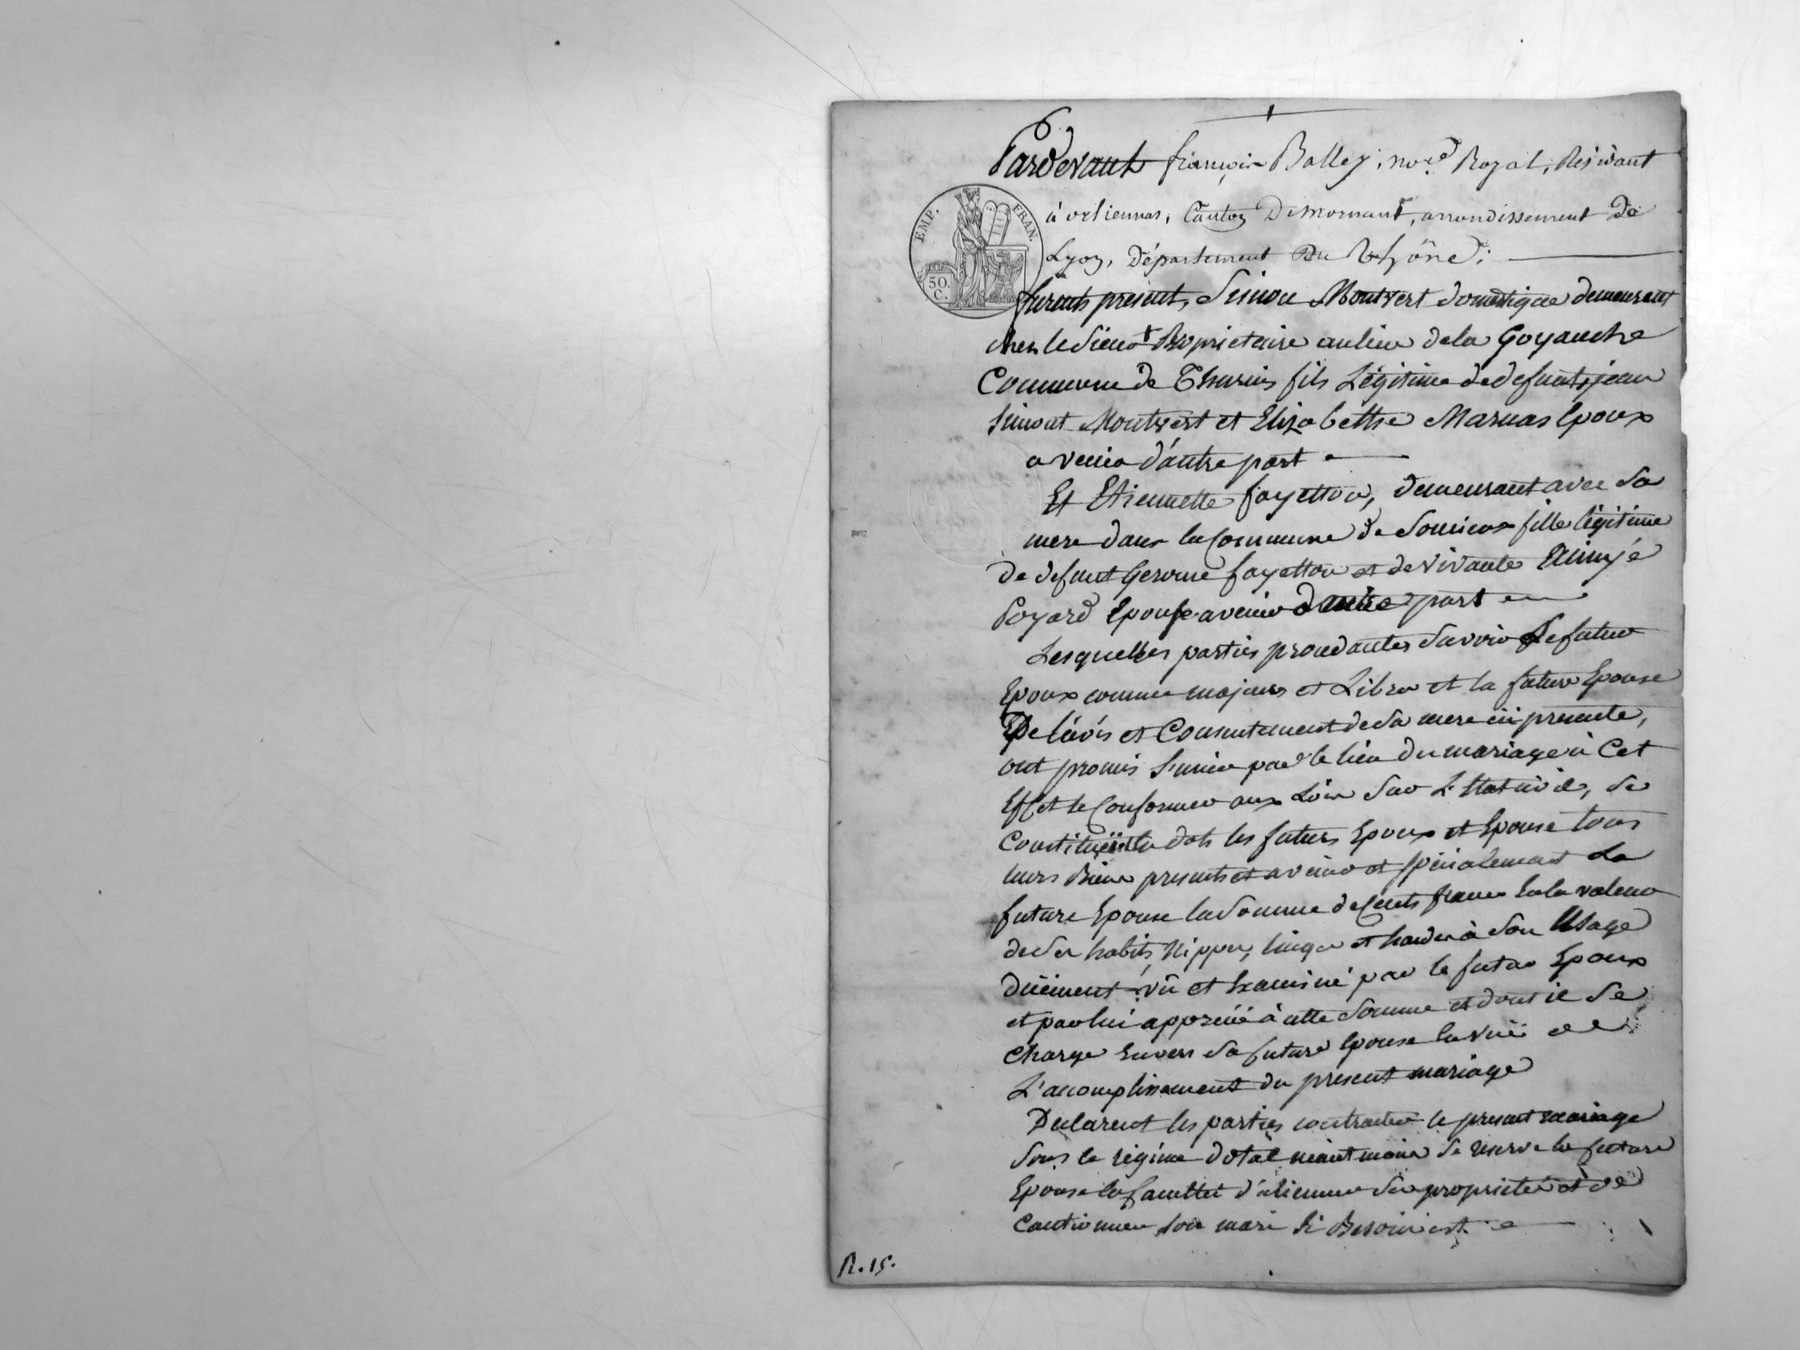 Pardevant françois Balley, no.re Royal, Résidant
à orliennas, Canton De mornant, arrondissement De
Lyon, Département Du Rhône;
EMP. FRAN.
50. C.
furent présent, Simon Montvert domestique demeurant
chez le Sieur Propriétaire au lieu de la Goyanche
Commune de Thurins fils Légitime de defunt jean
Simont Montvert et Elizabetthe Marnas Epoux
a venir d'autre part
Et Etiennette fayetton, demeurant avec Sa
mere dans la Commune de Soucieux fille légitime
de defunt Gerome fayetton et de vivante
Poyard Epouse avenir d'autre part
Lesquelles parties procedantes Savoir Le futur
Epoux comme majeur et Libre et la future Epouse
De l'avis et Consentement de Sa mere ici presente,
ont promis S'unir par le lien du mariage à Cet
Effet se Conformer aux Loix Sur L'Etat civil, Se
Constituënt en dots les futurs Epoux et Epouse tous
leurs Biens presents et avenir et Spécialement La
future Epouse la Somme de Cents francs En la valeur
de Ses habits, Nippes, linges et hardes à Son Usage
Duëment vû et Examiné par le futur Epoux
et par lui apprécié à cette Somme et dont il Se
Charge Envers Sa future Epouse En vuë de
L'acomplissement du présent mariage
Déclarent les parties contracter le présent mariage
Sous le régime dotal néantmoins Se reserve la future
Epouse la facultté d'aliéner Ses propriétés et de
Cautionner Son mari Si Besoin est
R. 15.